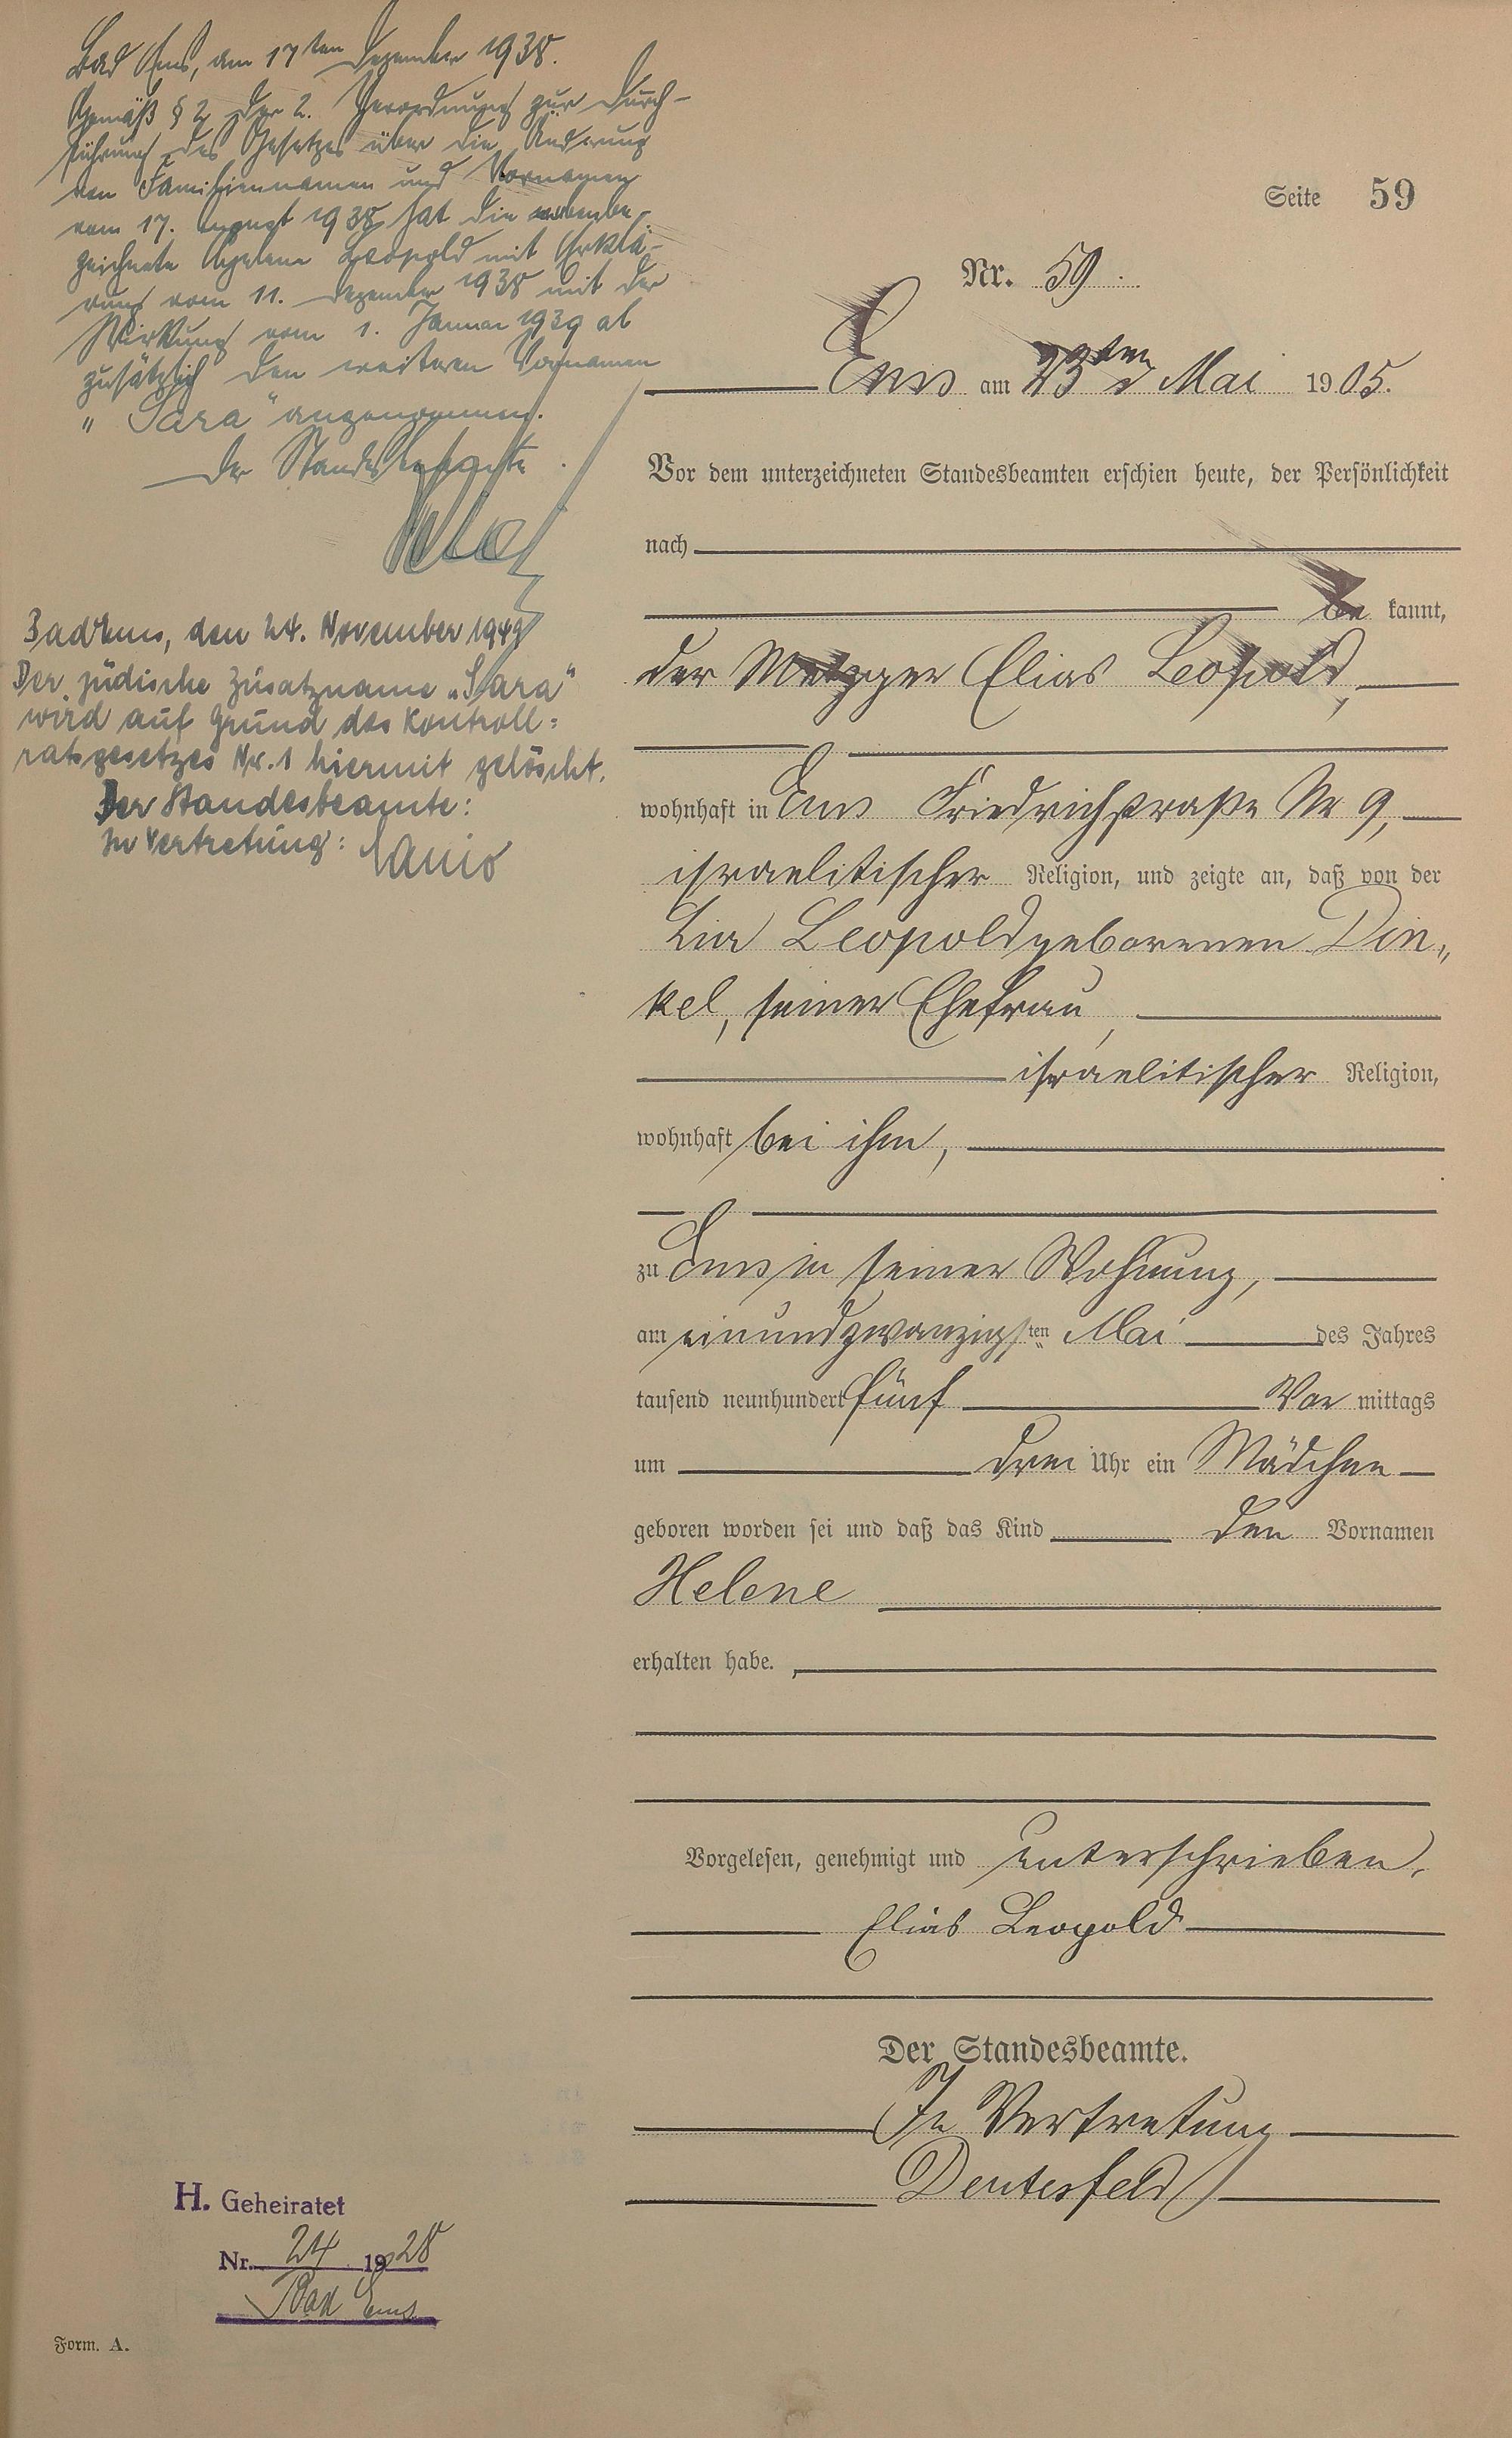 Bad Ems, am 17ten Dezember 1938.
Gemäß § 2 der 2. Verordnung zur Durch-
führung des Gesetzes über die Änderung
von Familiennamen und Vornamen
vom 17. August 1938 hat die nebenbe-
zeichnete Helene Leopold mit Erklä-
rung vom 11. Dezember 1938 mit der
Wirkung vom 1. Januar 1939 ab
zusätzlich den weiteren Vornamen
"Sara" angenommen.
Der Standesbeamte.
Bad Ems, den 24. November 1949
Der jüdische Zusatzname „Sara"
wird auf Grund des Kontroll=
ratsgesetzes Nr. 1 hiermit gelöscht.
Der Standesbeamte:
In Vertretung:
Seite 59
Nr. 59.
Ems am 23ten Mai 1905.
Vor dem unterzeichneten Standesbeamten erschien heute, der Persönlichkeit
nach
be kannt,
der Metzger Elias Leopold,
wohnhaft in Ems Friedrichstraße Nr 9,
israelitischer Religion, und zeigte an, daß von der
Lia Leopold geborenen Din„
kel, seiner Ehefrau,
israelitischer Religion,
wohnhaft bei ihm,
zu Ems in seiner Wohnung,
am einundzwanzigsten Mai des Jahres
tausend neunhundert fünf Vor mittags
um drei Uhr ein Mädchen
geboren worden sei und daß das Kind den Vornamen
Helene
erhalten habe.
Vorgelesen, genehmigt und unterschrieben.
Elias Leopold
Der Standesbeamte.
In Vertretung
Deutesfeld
H. Geheiratet
Nr. 24 1928
Bad Ems
Form. A.